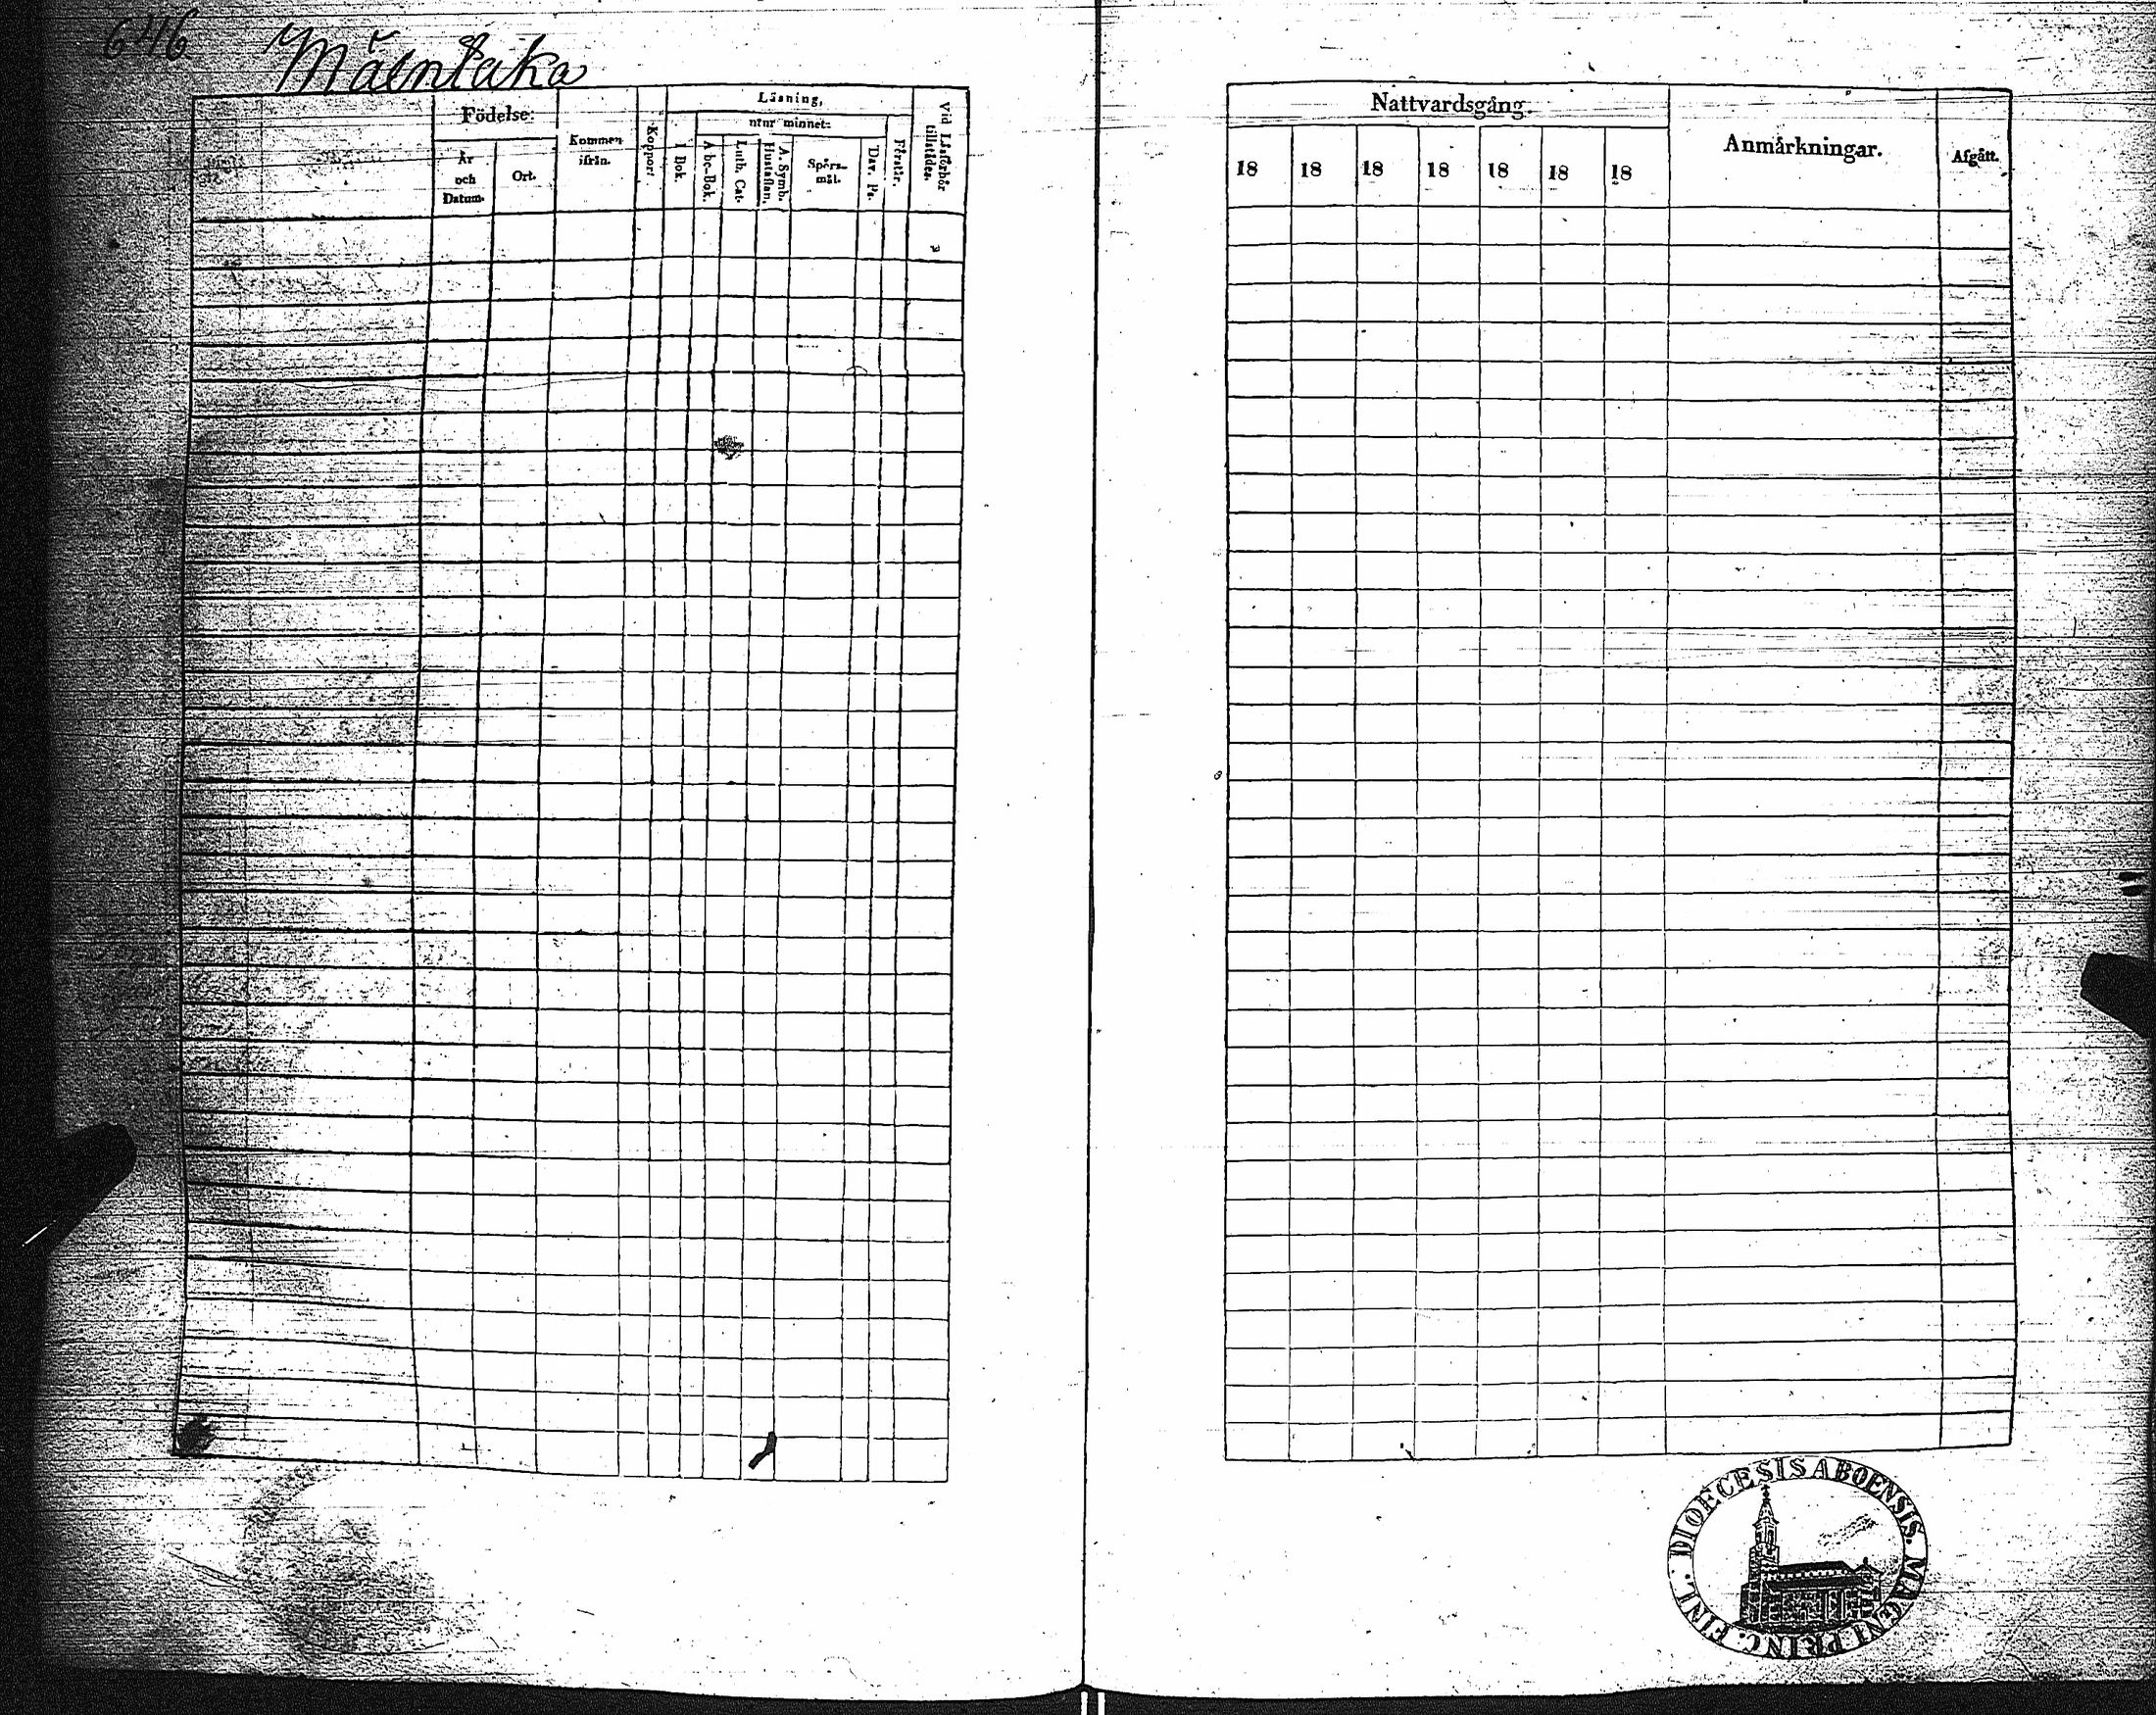 646 Mäentaka
Födelse:
År och Datum.
Ort.
Kommen ifrån.
Koppor.
Läsning,
I Bok.
utur minnet:
Abc-Bok.
Luth. Cat.
A. Symb. Hustaflan.
Spörs-mål.
Dav. Ps.
Förstår.
Vid Läsförhör tillstädes.
Nattvardsgång.
18 18 18 18 18 18 18
Anmårkningar.
Afgått.
DIOECESIS ABOENSIS. MAGNI PRINC. FINL.